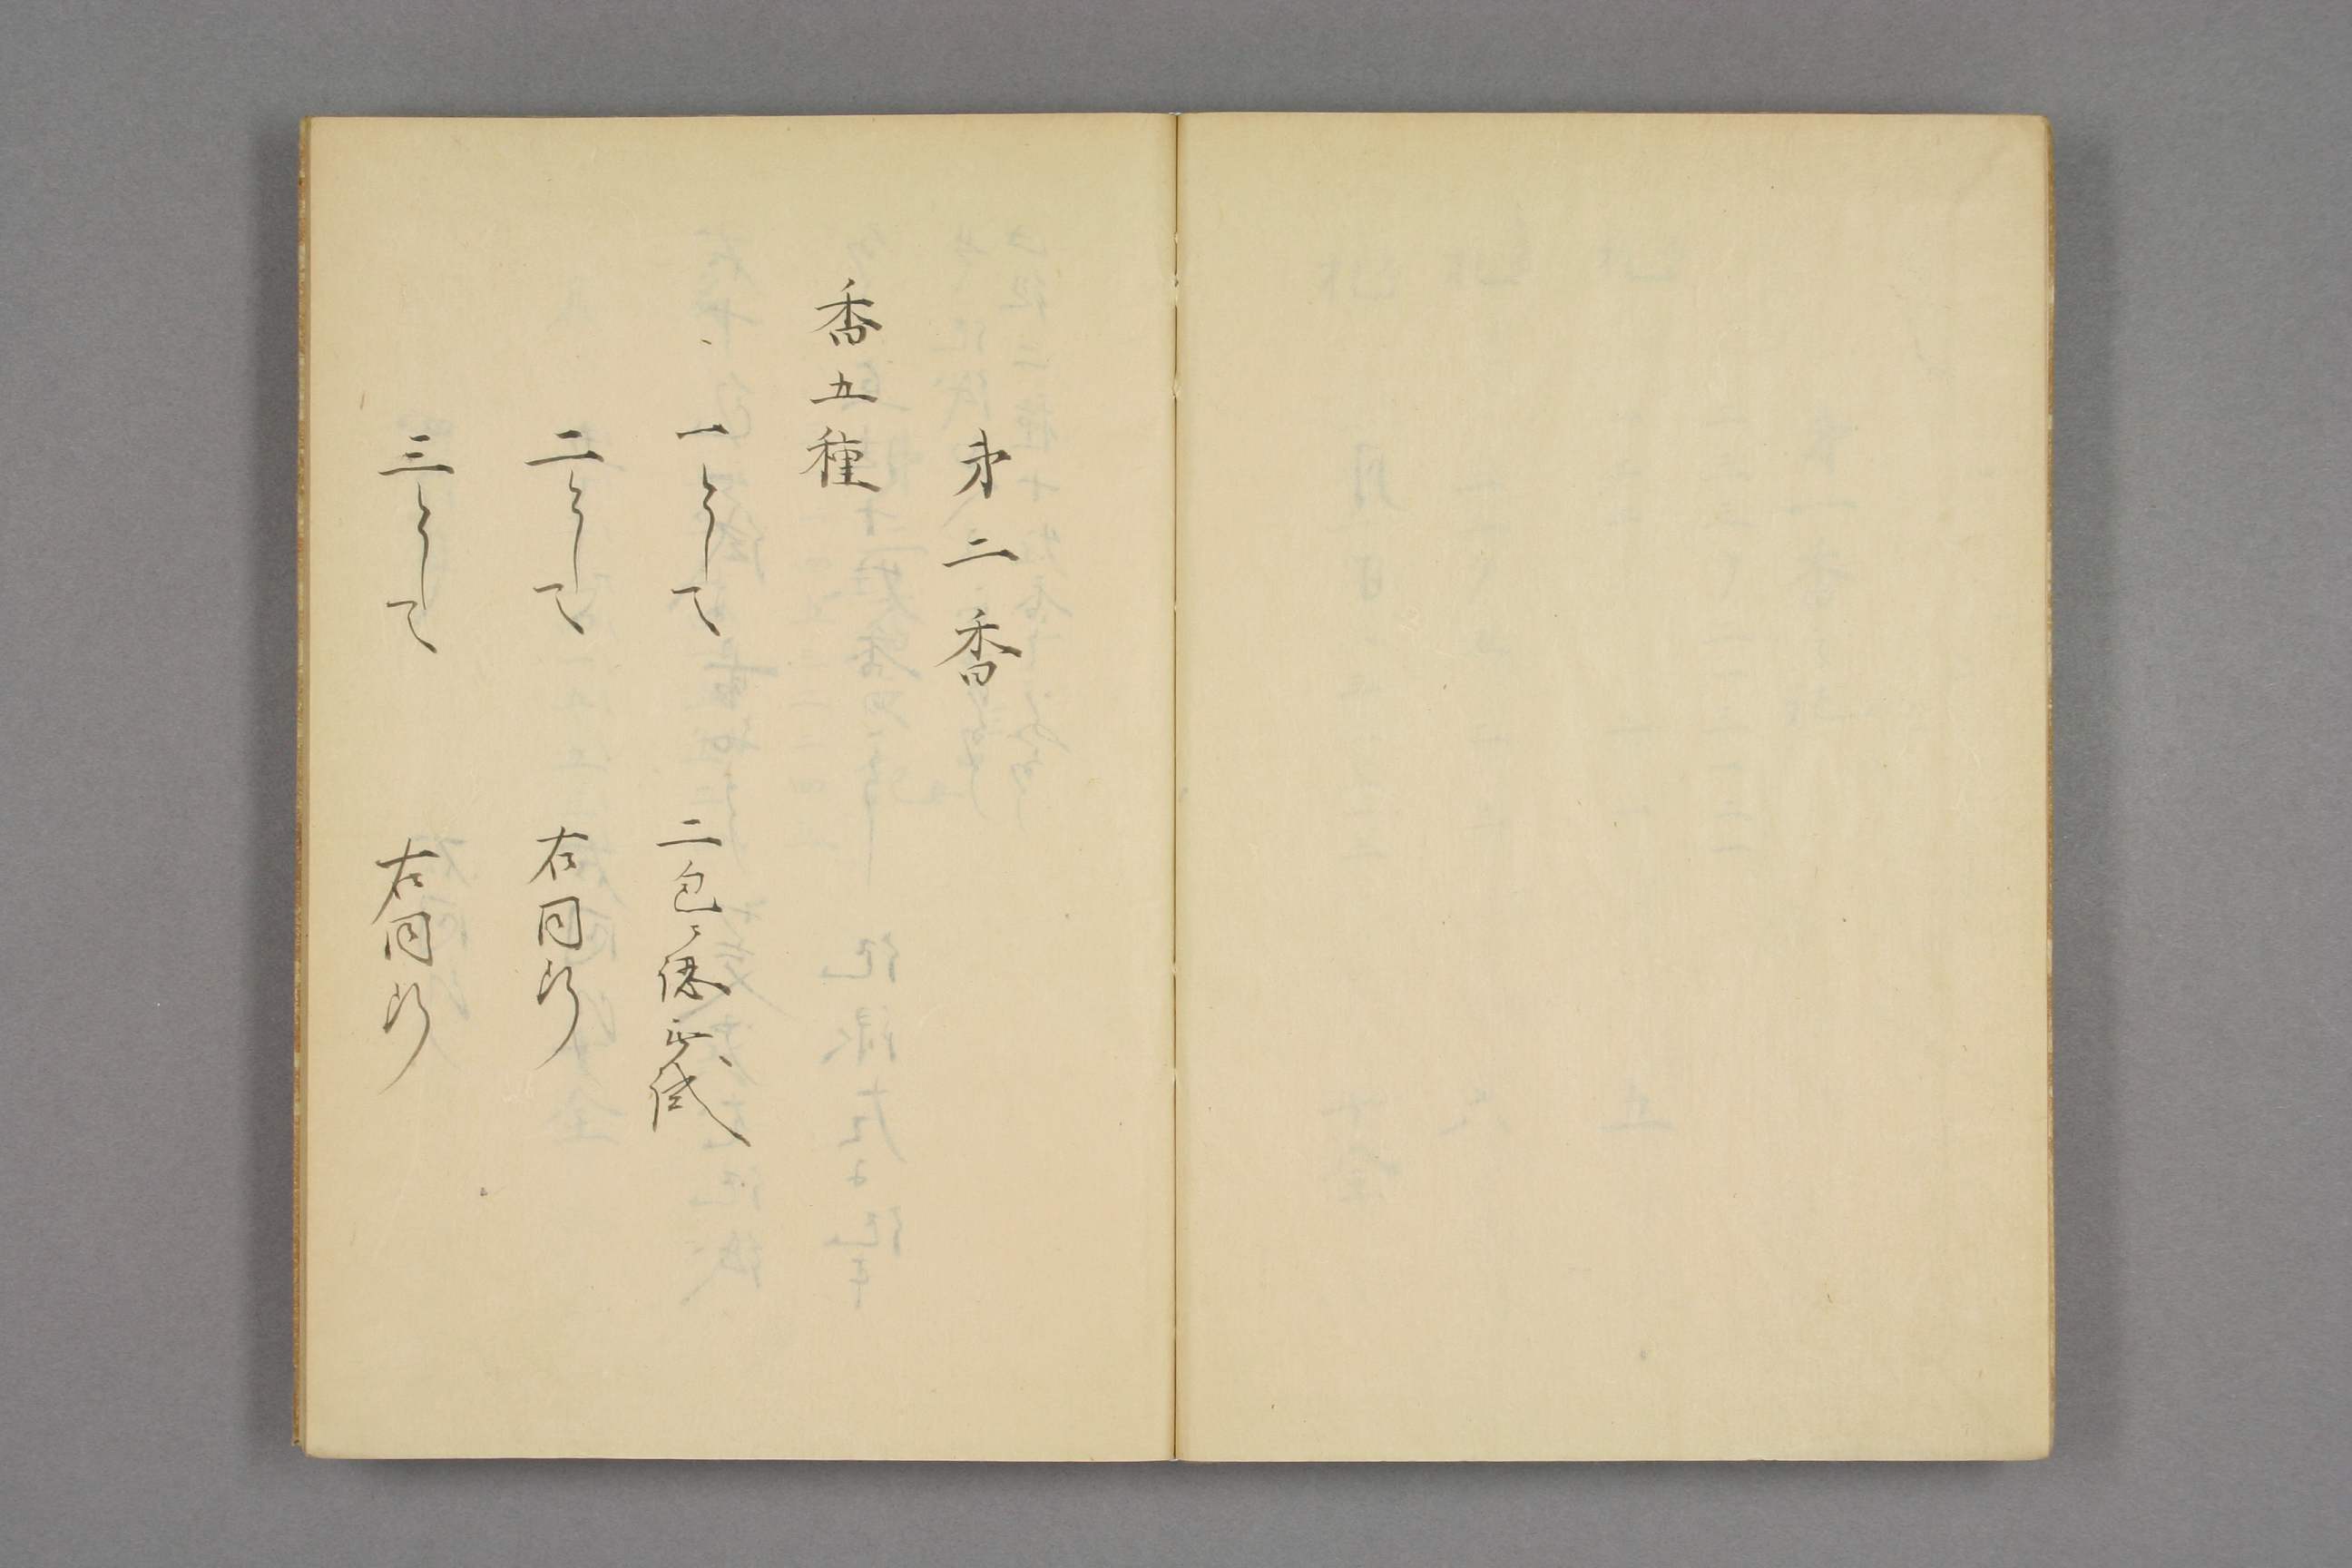 㐧二香
香五種
一として 二包ニ認無試
二として 右同断
三として 右同断